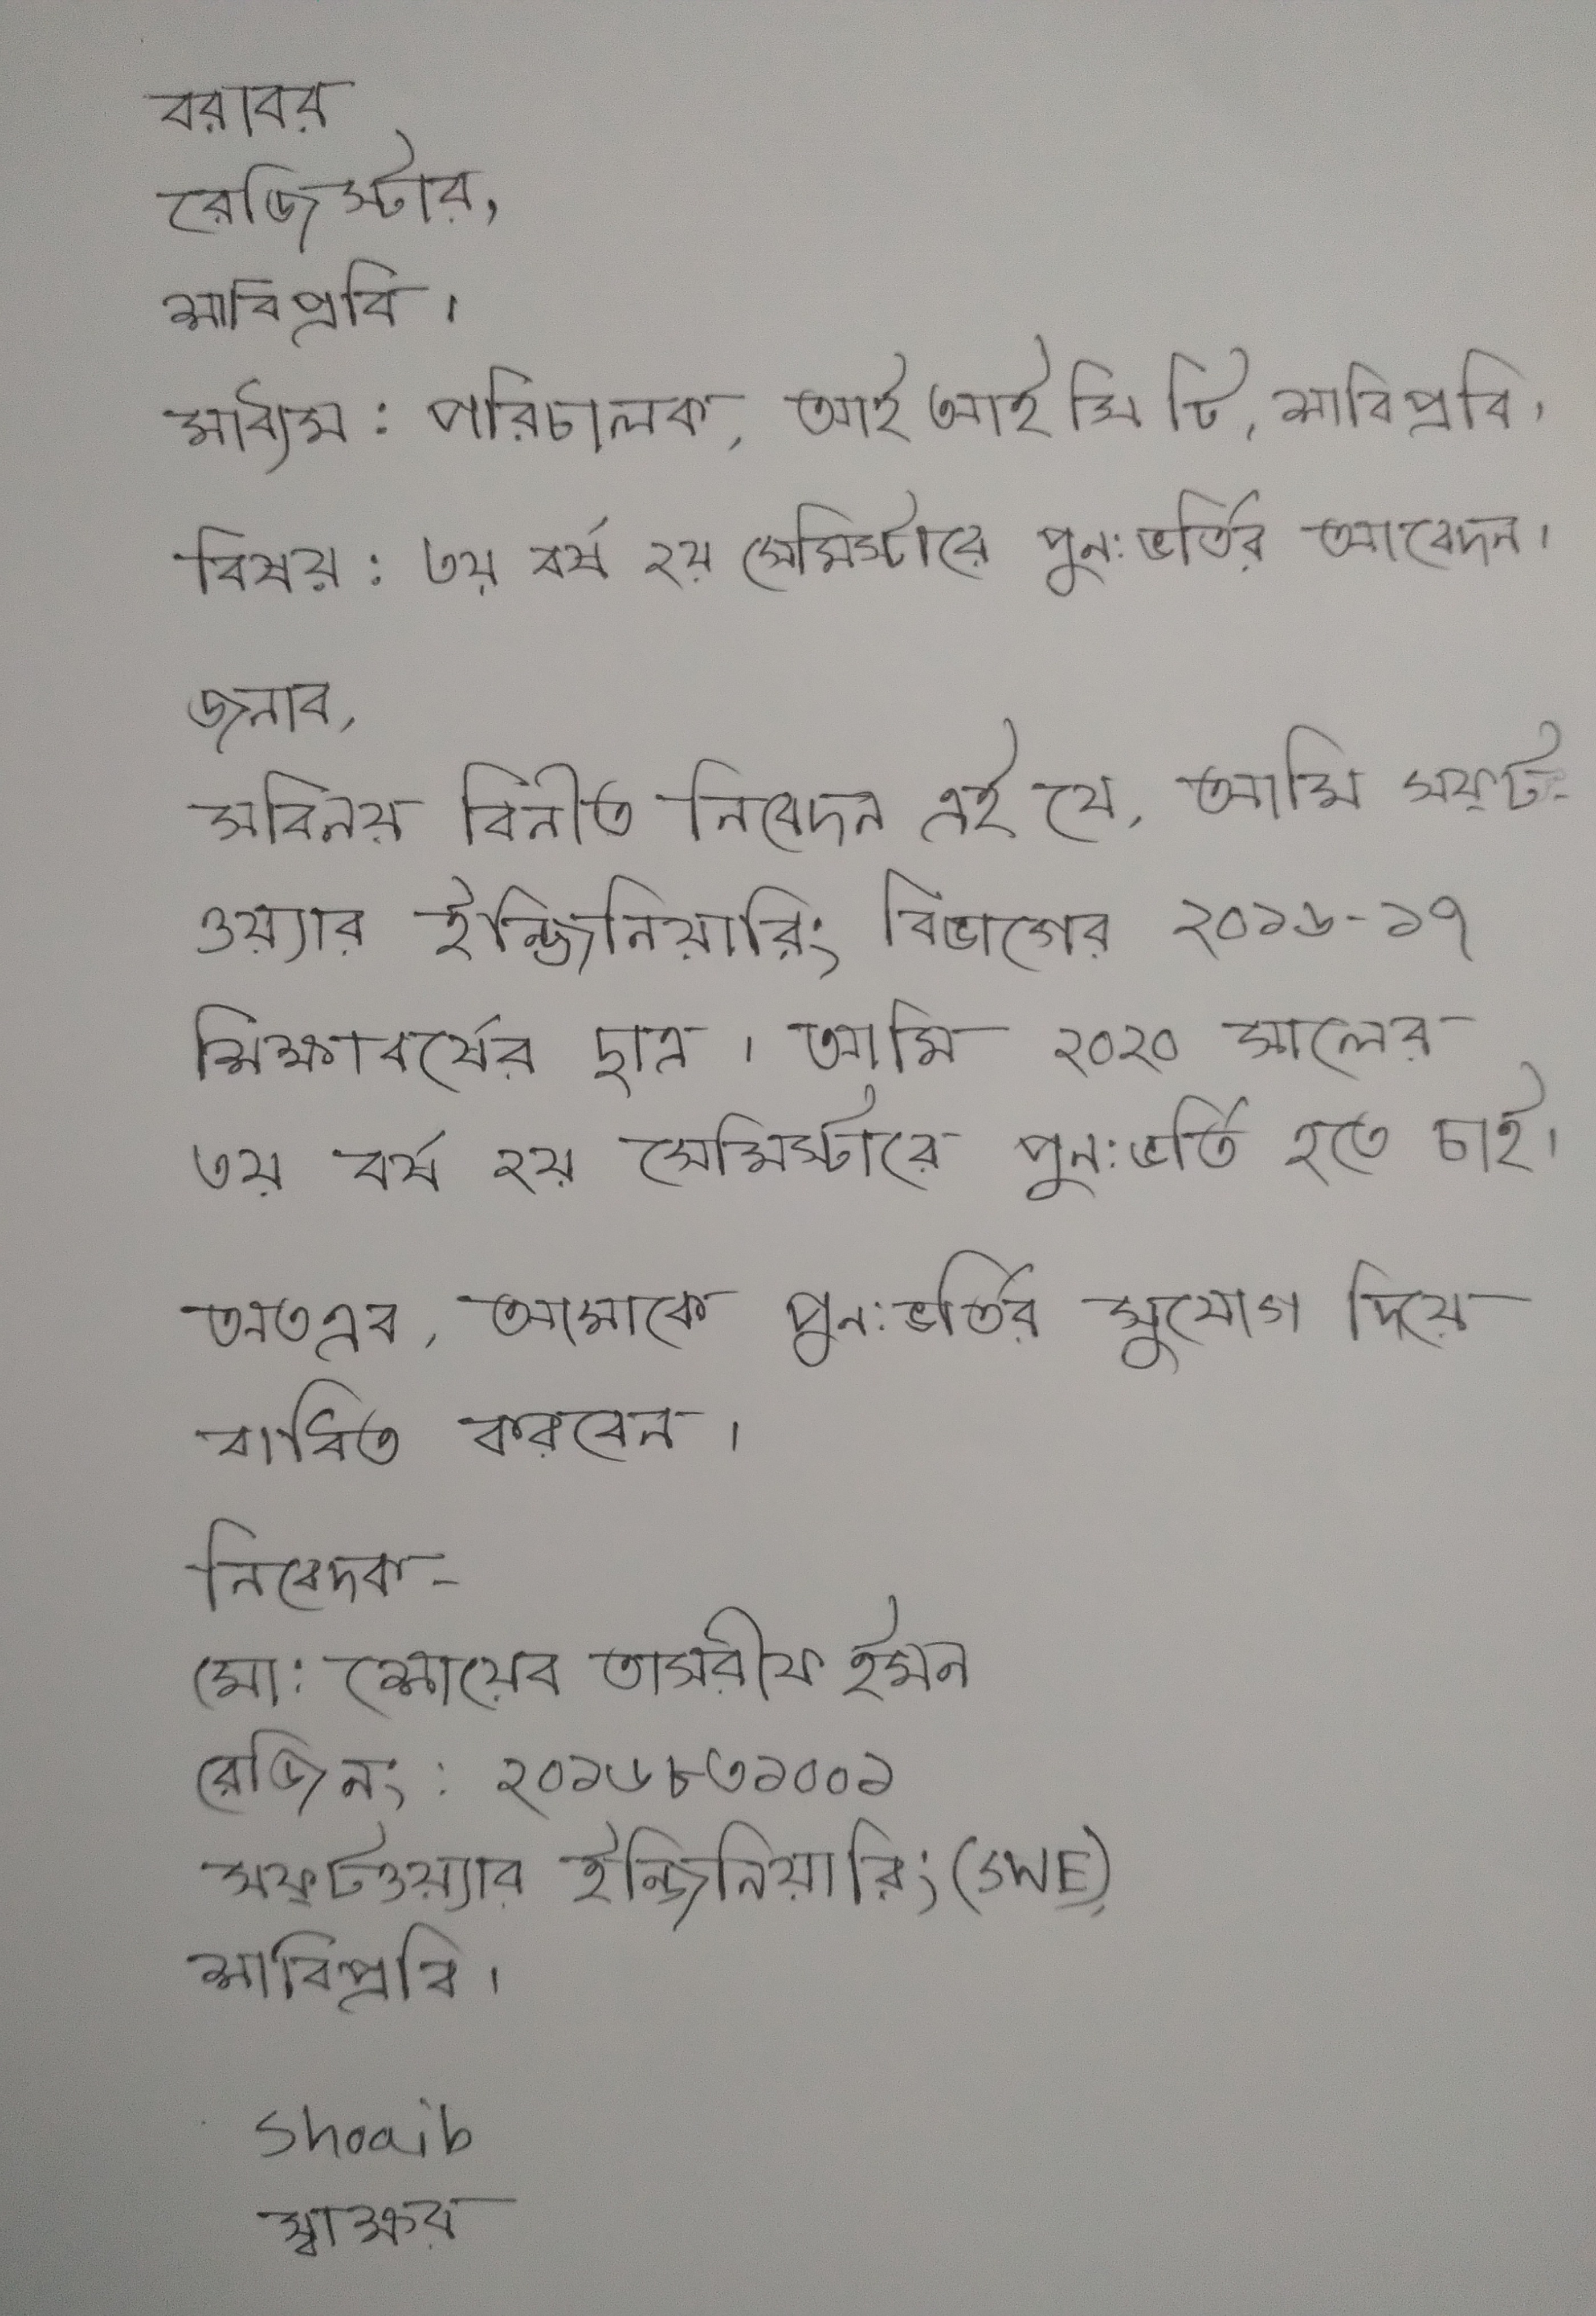 বরাবর
রেজিস্টার,
শাবিপ্রবি।
মাধ্যম : পরিচালক, আইআইসিটি, শাবিপ্রবি,
বিষয় : ৩য় বর্ষ ২য় সেমিস্টারে পুন:ভর্তির আবেদন।
জনাব,
সবিনয় বিনীত নিবেদন এই যে, আমি সফ্‌ট-
ওয়্যার ইন্জিনিয়ারিং বিভাগের ২০১৬-১৭
শিক্ষাবর্ষের ছাত্র। আমি ২০২০ সালের
৩য় বর্ষ ২য় সেমিস্টারে পুন:ভর্তি হতে চাই।
অতএব, আমাকে পুন:ভর্তির সুযোগ দিয়ে
বাধিত করবেন।
নিবেদক-
মো: শোয়েব তাসরীফ ইমন
রেজি নং : ২০১৬৮৩১০০১
সফ্‌টওয়্যার ইন্জিনিয়ারিং (SWE)
শাবিপ্রবি।
Shoaib
স্বাক্ষর